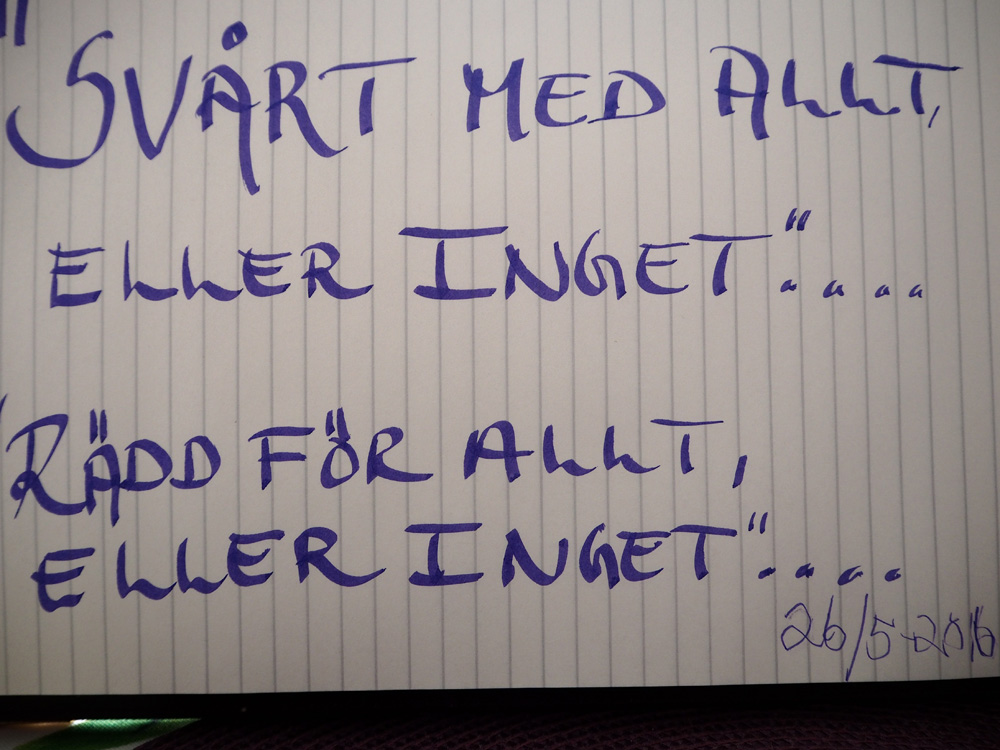 "SVÅRT MED ALLT,
ELLER INGET"....
"RÄDD FÖR ALLT,
ELLER INGET"....
26/5-2016